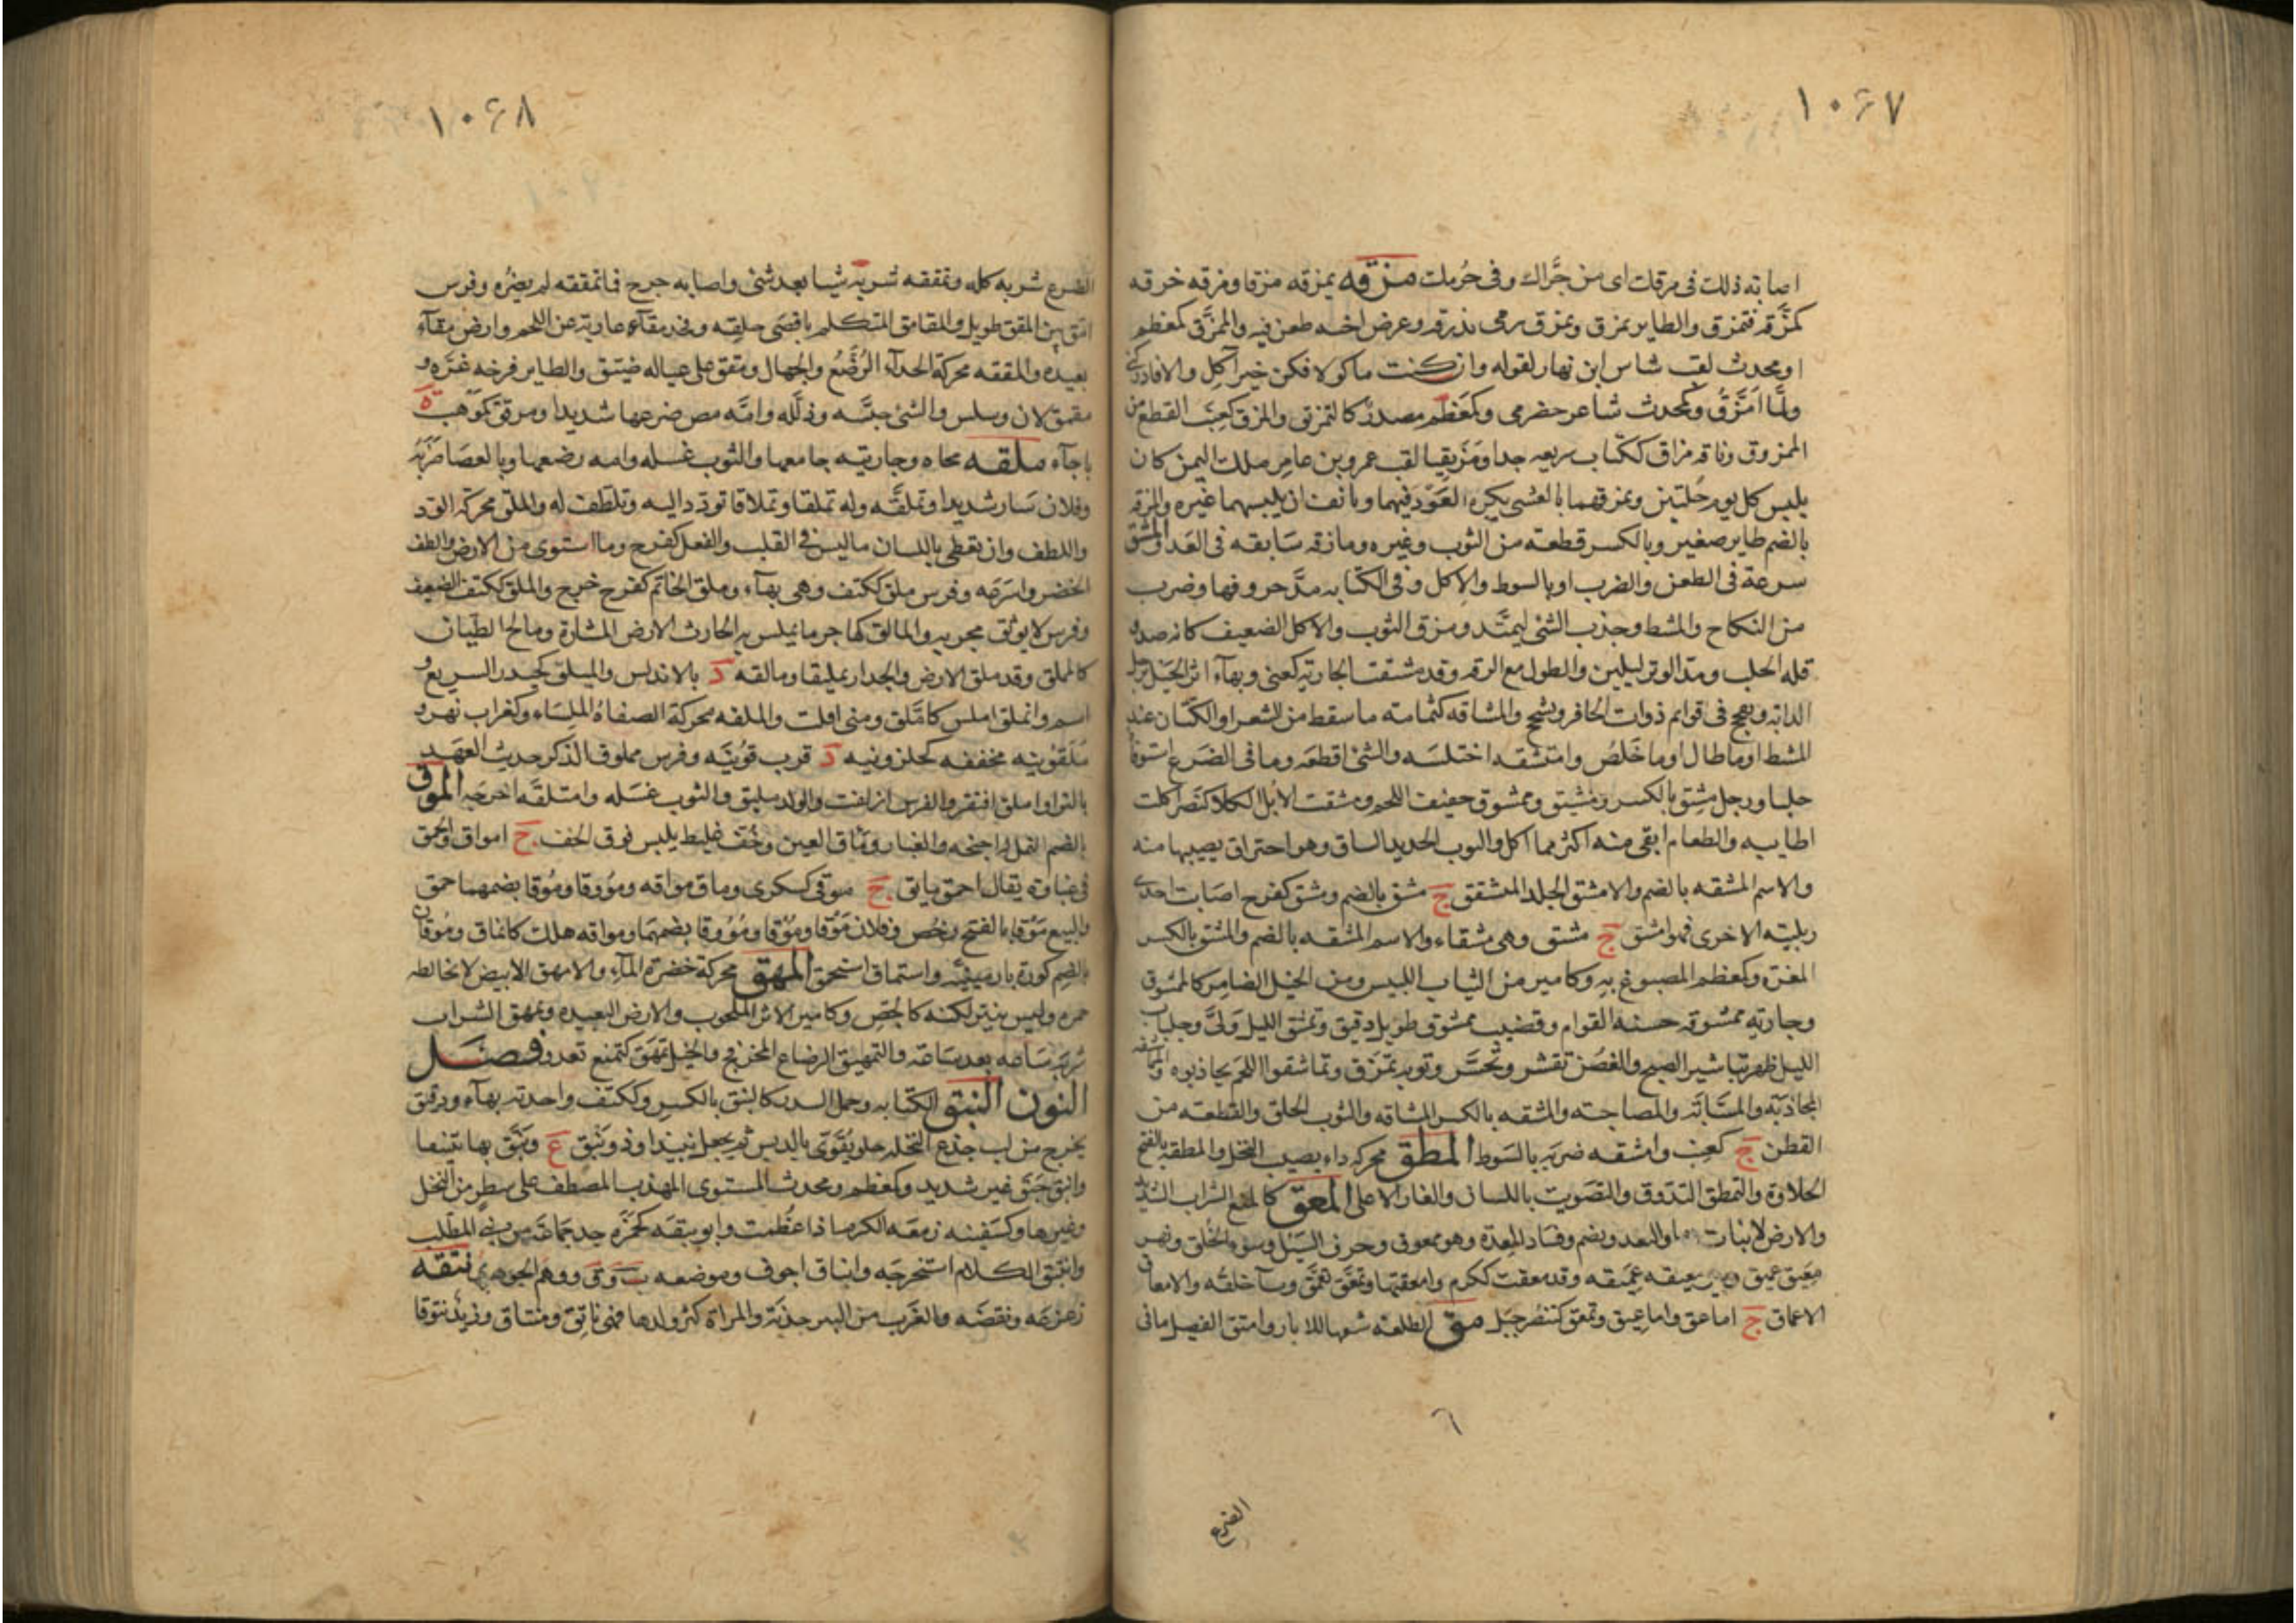 ١٠٦٧
اصابه ذلك فى مرقك اى من جراك وفى حرمك مزقه يمزقه مزقا ومزقه خرقه
كمزقه فتمزق والطاير يمزق ويمزق رمى بذرقه وعرض اخيه طعن فيه والممزق كمعظم
او محدث لقب شاس ابن نهار لقوله وان كنت ماكولا فكن خير آكل والا فادركنى
ولما امزق وكمحدث شاعر حضرمى وكمعظم مصدر كالتمزق والمزق كعنب القطع من
الممزوق وناقة مزاق ككتاب سريعه جدا ومزيقيا لقب عمرو بن عامر ملك اليمن كان
يلبس كل يوم حلتين ويمزقهما بالعشى يكره العود فيهما ويانف ان يلبسهما غيره والمزقه
بالضم طاير صغير وبالكسر قطعة من الثوب وغيره ومازقه سابقه فى العدو المشق
سرعة فى الطعن والضرب او بالسوط والاكل وفى الكتابه مد حروفها وضرب
من النكاح والمشط وجذب الشئ ليمتد ومزق الثوب والاكل الضعيف كانه ضد و
قله الحلب ومد الوتر ليلين والطول مع الرقه وقد مشقت الجاريه كعنى وبهاء اثر الحبل برجل
الدابه وبهج فى قوايم ذوات الحافر وتشحج والمشاقه كثمامه ما سقط من الشعر او الكتان عند
المشط او ما طال او ما خلص وامتشقه اختلسه والشئ اقطعه وما فى الضرع استوفاه
حلبا ورجل مشق بالكسر ومشيق وممشوق خفيف اللحم ومشقت الابل الكلا كنصر اكلت
اطايبه والطعام ابقى منه اكثر مما اكل والثوب الجديد الساق وهو احتراق يصيبها منه
والاسم المشقه بالضم والامشق الجلد المشقق ج مشق بالضم ومشق كفرح اصابت احدى
ربلتيه الاخرى فهو امشق ج مشق وهى مشقاء والاسم المشقه بالضم والمشق بالكسر
المغرة وكمعظم المصبوغ به وكامير من الثياب اللبيس ومن الخيل الضامر كالممشوق
وجاريه ممشوقه حسنه القوام وقضيب ممشوق طويل دقيق وتمشق الليل ولى وجلباب
الليل ظهر تباشير الصبح والغصن تقشر وتحسر وثوبه تمزق وتماشقوا اللحم تجاذبوه والمماشقه
المجاذبة والمسابة والمصاحبة والمشقه بالكسر المشاقه والثوب الخلق والقطعه من
القطن ج كعنب وامشقه ضربه بالسوط المطق محركه داء يصيب النخل والمطقه بالفتح
الحلاوة والتمطق التذوق والتصويت باللسان والغار الاعلى المعق كالمنع الشراب الشديد
والارض لا نبات بها والبعد ويضم وفساد المعدة وهو ممعوق وحرف السيل وسوء الخلق ونهر
معيق عميق وبير معيقه عميقه وقد معقت ككرم وامعقتها وتمعق تعمق وساء خلقه والامعاق
الاعماق ج اماعق واماعيق وتمعق كتنصر جبل مق الطلعه شقها للابار وامتق الفصيل ما فى
الضرع
١٠٦٨
الضرع شربه كله وتمققه شربه شيا بعد شئ واصابه جرح فما تمققه لم يضره وفرس
امق بين المقق طويل والمقامق المتكلم باقصى حلقه وفخذ مقاء عارية عن اللحم وارض مقاء
بعيده والمققه محركة الجداء الرضع والجهال ومقق على عياله ضيق والطاير فرخه غره و
مقمق لان وسلس والشئ جشه وذلله وامه مص ضرعها شديدا ومرقى كموهب ة
باجاء ملقه محاه وجاريته جامعها والثوب غسله وامه رضعها وبالعصا ضربه
وفلان سار شديدا وتملقه وله تملقا وتملاقا تودد اليه وتلطف له والملق محركة الود
واللطف وان تعطى باللسان ما ليس فى القلب والفعل كفرح وما استوى من الارض والطف
الحضر واسرعه وفرس ملق ككتف وهى بهاء وملق الخاتم كفرح خرج والملق ككتف الضعيف
وفرس لا يوثق بجريه والمالق كهاجر ما يملس به الحارث الارض المثارة ومالج الطيان
كالمملق وقد ملق الارض والجدار تمليقا ومالقه د بالاندلس والميلق كحيدر السريع و
اسم وانملق املس كاملق ومنى افلت والملقه محركة الصفاة الملساء وكغراب نهر و
ملقونيه مخففه كحلزونيه د قرب قونيه وفرس مملوق الذكر حديث العهد
بالنزا واملق افتقر والفرس ازلقت والولد مليق والثوب غسله وامتلقه اخرجه الموق
بالضم النمل له اجنحه والغبار وماق العين وخف غليظ يلبس فوق الخف ج امواق وحمق
فى غباوة يقال احمق مايق ج موقى كسكرى وماق مواقه ومؤوقا وموقا بضمهما حمق
والبيع موقا بالفتح رخص وفلان موقا وموقا ومؤوقا بضمهما ومواقه هلك كانماق وموقان
بالضم كورة بارمينيه واستماق استحمق المهق محركة خضرة الماء والامهق الابيض لا يخالطه
حمره وليس بنير لكنه كالجص وكامير الاثر الملحوب والارض البعيده وتمهق الشراب
شربه ساعه بعد ساعه والتمهيق الرضاع المخرفج والخيل تمهق كتمنع تعدو فصل
النون النبق الكتابه وحمل السدر كالنبق بالكسر وككتف واحدته بهاء ودقيق
يخرج من لب جذع النخله حلو يقوى بالدبس ثم يجعل نبيذا وذو نبق ع ونبق بها تنبيقا
وانبق حبق غير شديد وكمعظم ومحدث المستوى المهذب المصطف على سطر من النخل
وغيرها وكسفينه زمعه الكرم اذا عظمت وابو نبقه كحمزه جد جماعة من بنى المطلب
وانتبق الكلام استخرجه وانباق اجوف وموضعه بوق ووهم الجوهرى نتقه
زعزعه ونفضه والغرب من البير جذبه والمراة كثر ولدها فهى ناتق ومنتاق وزيد نتوقا